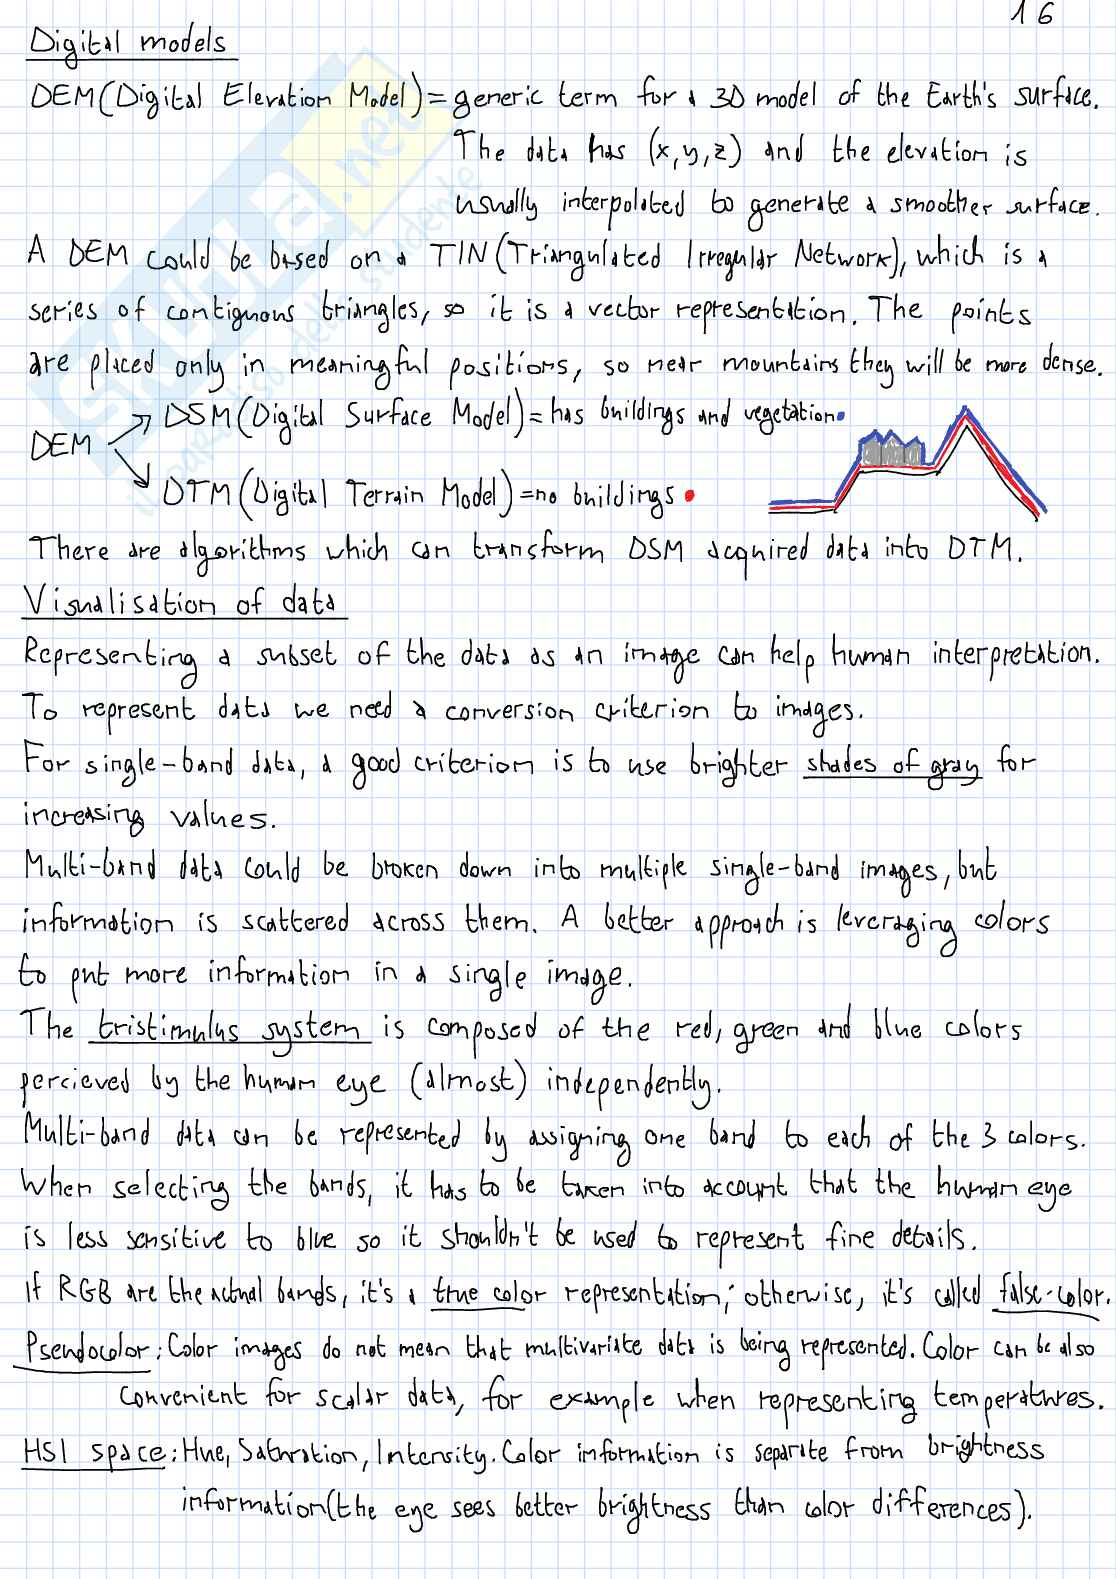 16
Digital models
DEM(Digital Elevation Model)=generic term for a 3D model of the Earth's surface.
The data has (x,y,z) and the elevation is
usually interpolated to generate a smoother surface.
A DEM could be based on a TIN(Triangulated Irregular Network), which is a
series of contiguous triangles, so it is a vector representation. The points
are placed only in meaningful positions, so near mountains they will be more dense.
DSM(Digital Surface Model)=has buildings and vegetation
DEM
DTM(Digital Terrain Model)=no buildings
There are algorithms which can transform DSM acquired data into DTM.
Visualisation of data
Representing a subset of the data as an image can help human interpretation.
To represent data we need a conversion criterion to images.
For single-band data, a good criterion is to use brighter shades of gray for
increasing values.
Multi-band data could be broken down into multiple single-band images, but
information is scattered across them. A better approach is leveraging colors
to put more information in a single image.
The tristimulus system is composed of the red, green and blue colors
percieved by the human eye (almost) independently.
Multi-band data can be represented by assigning one band to each of the 3 colors.
When selecting the bands, it has to be taken into account that the human eye
is less sensitive to blue so it shouldn't be used to represent fine details.
If RGB are the actual bands, it's a true color representation; otherwise, it's called false-color.
Pseudocolor: Color images do not mean that multivariate data is being represented. Color can be also
convenient for scalar data, for example when representing temperatures.
HSI space: Hue, Saturation, Intensity. Color information is separate from brightness
information(the eye sees better brightness than color differences).